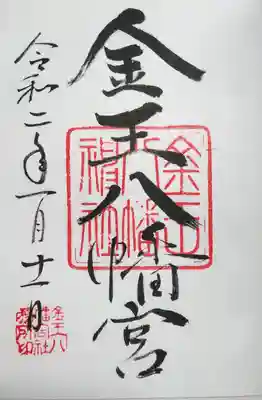 金王八幡宮
金王
八幡
神社
令和二年一月十一日